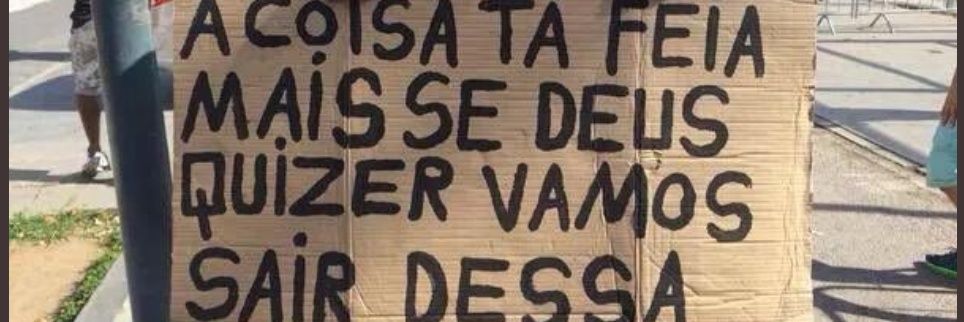 A COISA TA FEIA
MAiS SE DEUS
QUiZER VAMOS
SAiR DESSA